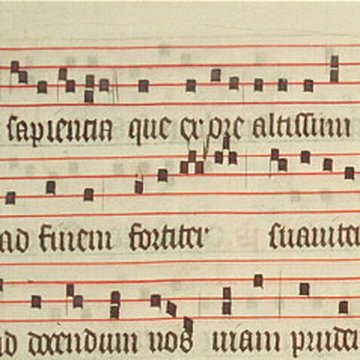 sapiencia que ex ore altissimi
ad finem fortiter suauiter
ad docendum nos uiam pruden